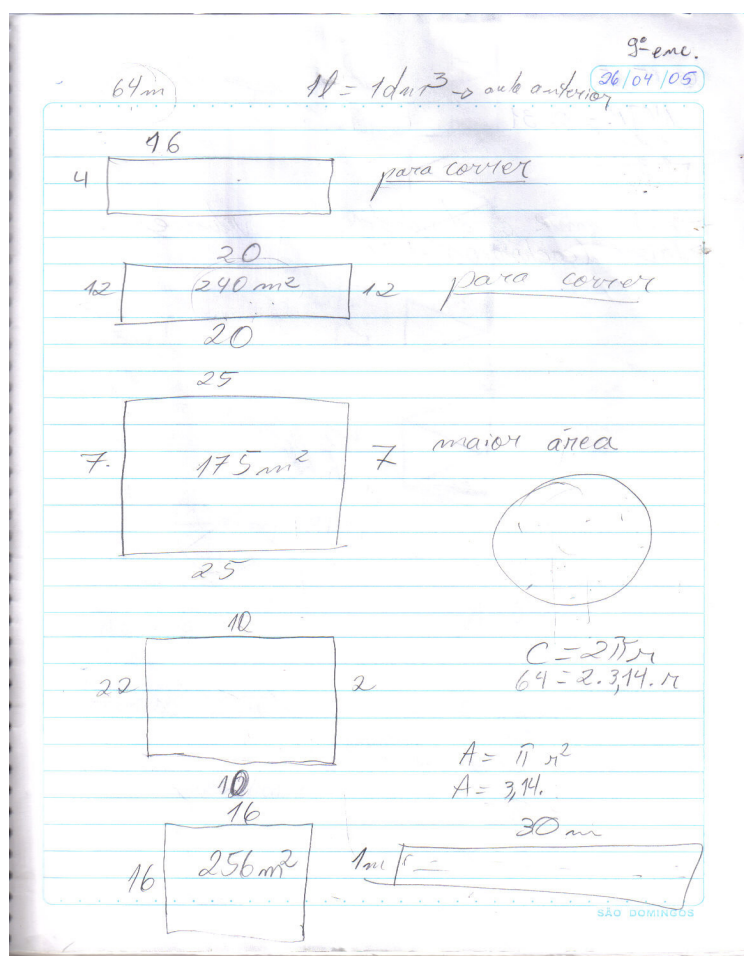 9º enc.
64m
1l = 1dm³ → aula anterior
26/04/05
16
4
para correr
20
12
240 m²
12
para correr
20
25
7.
175 m²
7
maior área
25
10
22
2
C = 2πr
64 = 2.3,14.r
A = π r²
A = 3,14.
10
16
16
256 m²
30 m
1m
r =
SÃO DOMINGOS